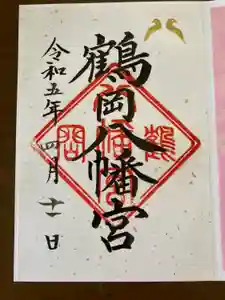 鶴岡八幡宮
令和五年四月十一日